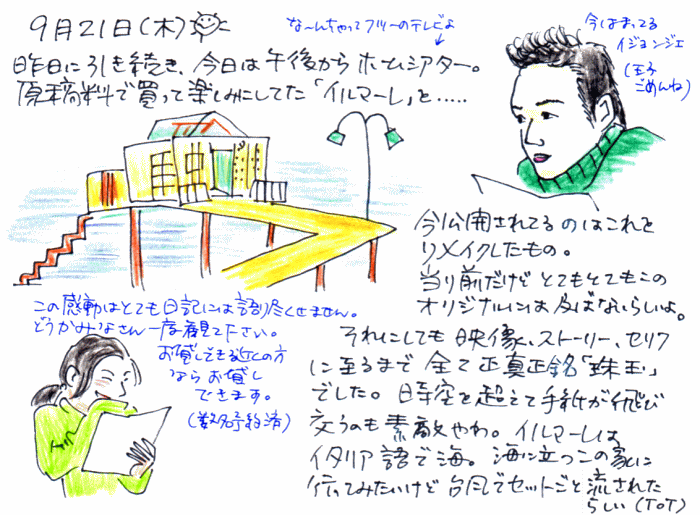 9月21日(木)
な〜んちゃってフツーのテレビよ
昨日に引き続き、今日は午後からホームシアター。
原稿料で買って楽しみにしてた「イルマーレ」と.....
今はまってる
イジョンジェ
(王子
ごめんね)
今公開されてるのはこれを
リメイクしたもの。
当り前だけどとてもとてもこの
オリジナルには及ばないらしいよ。
この感動はとても日記には語り尽くせません。
どうかみなさん一度観て下さい。
お貸しできる近くの方
ならお貸し
できます。
(数名予約済)
それにしても映像、ストーリー、セリフ
に至るまで全て正真正銘「珠玉」
でした。時空を超えて手紙が飛び
交うのも素敵やわ。イルマーレは
イタリア語で海。海に立つこの家に
行ってみたいけど台風でセットごと流された
らしい(ToT)